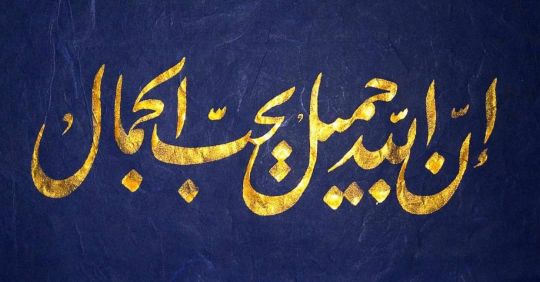 إنّ الله جميل يحبّ الجمال